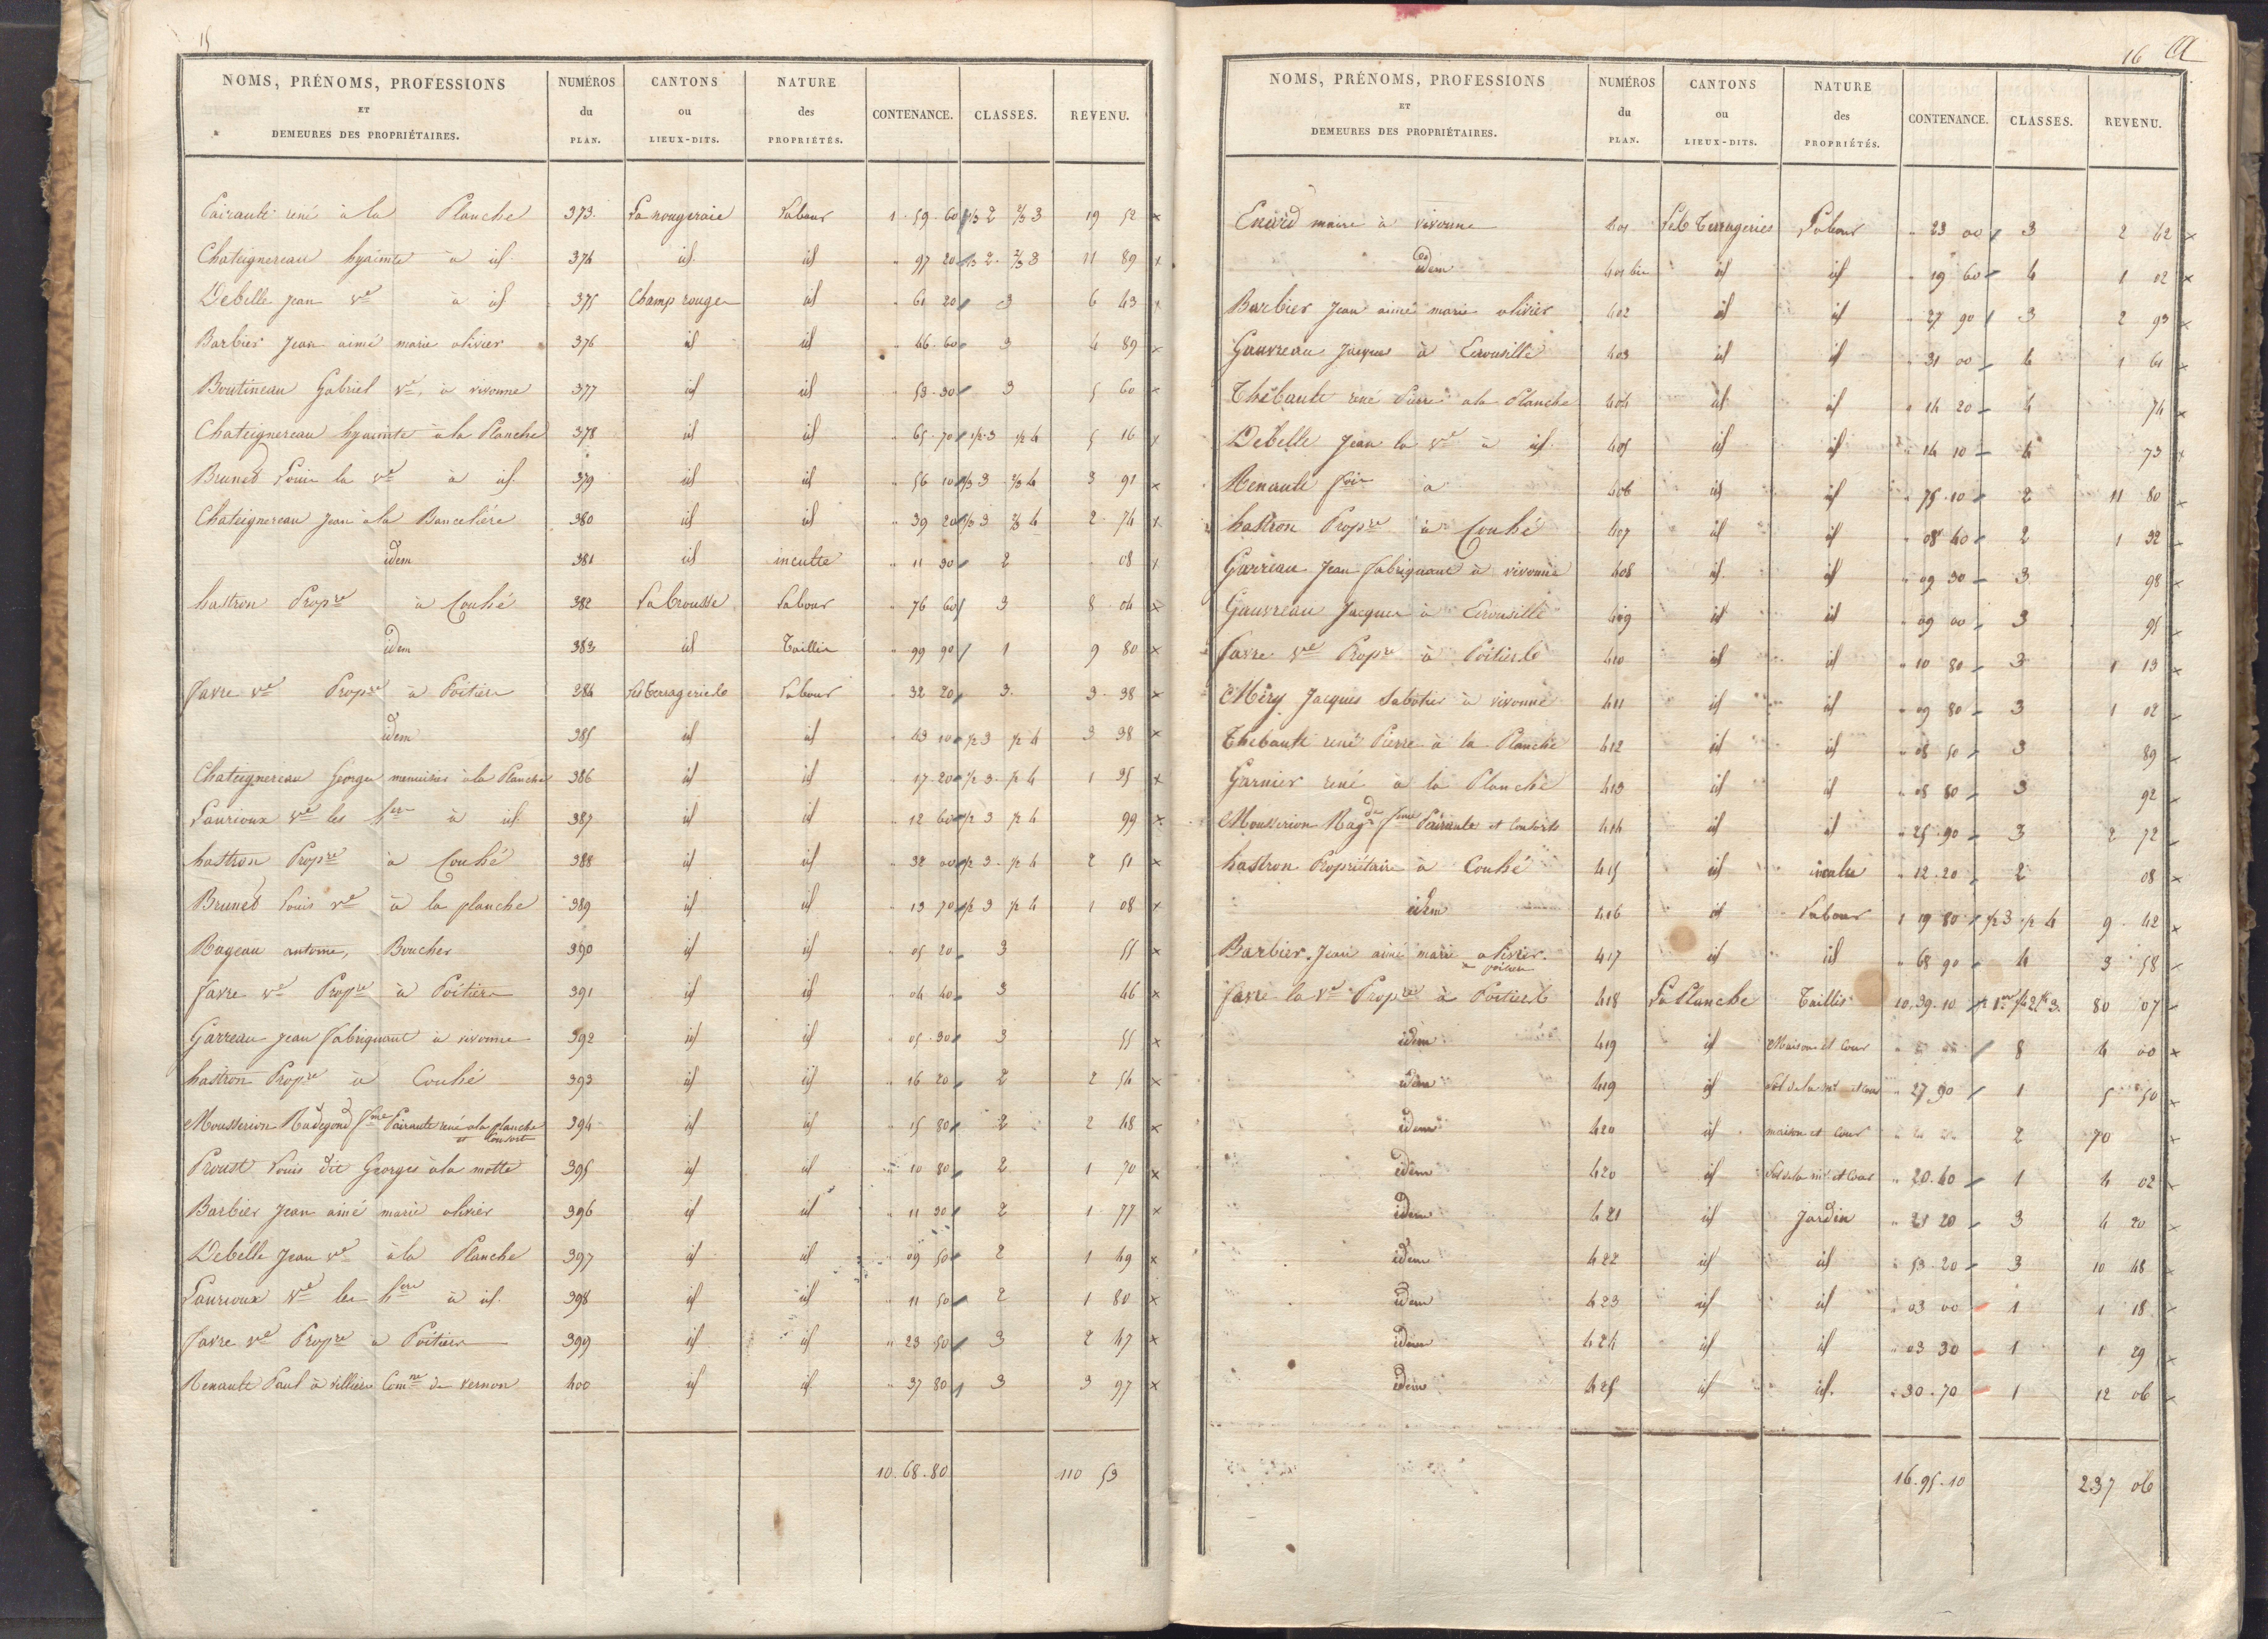 15
NOMS, PRÉNOMS, PROFESSIONS ET DEMEURES DES PROPRIÉTAIRES. NUMÉROS du PLAN. CANTONS ou LIEUX-DITS. NATURE des PROPRIÉTÉS. CONTENANCE. CLASSES. REVENU.
Pairault rené à la Planche 373. La rougeraie Labour 1 . 59 . 60 1/3 2 2/3 3 19 52 x
Chateignereau hyacinte à id. 374 id id " 97 20 1/3 2 . 2/3 3 11 89 x
Debelle Jean Ve à id 375 Champ rouge id " 61 20 3 6 43 x
Barbier Jean aimé marie olivier 376 id id " 46 . 60 3 4 89 x
Boutineau Gabriel Ve. à vivonne 377 id id " 53 . 30 3 5 60 x
Chateignereau hyacinte à la Planche 378 id id " 65 . 70 1/2 . 3 1/2 4 5 16 x
Brunet Louis la Ve à id. 379 id id " 56 10 1/3 3 2/3 4 3 91 x
Chateignereau Jean à la Banceliére 380 id id " 39 20 1/3 3 2/3 4 2 . 74 x
idem 381 id inculte " 11 30 2 08 x
hastron Propre à Couhé 382 La brousse Labour " 76 60 3 8 04 x
idem 383 id Taillis " 99 90 1 9 80 x
favre Ve Propre à Poitiers 284 Les terrageries Labour " 32 20 3. 3 . 38 x
idem 385 id id " 43 10 1/2 3 1/2 4 3 38 x
Chateignereau George menuisier à la Planche 386 id id " 17 . 20 1/2 3 . 1/2 4 1 35 x
Laurioux Ve les hers à id. 387 id id " 12 60 1/2 3 1/2 4 99 x
hastron Propre à Couhé 388 id id " 32 00 1/2 3 . 1/2 4 2 51 x
Brunet Louis Ve à la planche 389 id id " 13 70 1/2 3 1/2 4 1 08 x
Rageau antoine, Boucher 390 id id " 05 20 3 55 x
favre Ve Propre à Poitiers 391 id id " 04 40 3 46 x
Garreau Jean fabriquant à vivonne 392 id id " 05 . 30 3 55 x
hastron Propre à Couhé 393 id id " 16 20 2 2 54 x
Mousserion Radegond fme Pairault rené à la planche et Consorts 394 id id " 15 80 2 2 48 x
Proust Louis dit Georges à la motte 395 id id " 10 80 2 1 70 x
Barbier Jean aimé marie olivier 396 id id " 11 30 2 1 77 x
Debelle Jean Ve à la Planche 397 id id " 09 50 2 1 49 x
Laurioux Ve les hers à id. 398 id id " 11 50 2 1 80 x
favre Ve Propre à Poitiers 399 id id " 23 50 3 2 47 x
Renault Paul à villiers Comne de vernon 400 id id " 37 80 3 3 97 x
10 . 68 . 80 110 53
16
NOMS, PRÉNOMS, PROFESSIONS ET DEMEURES DES PROPRIÉTAIRES. NUMÉROS du PLAN. CANTONS ou LIEUX-DITS. NATURE des PROPRIÉTÉS. CONTENANCE. CLASSES. REVENU.
maire à vivonne 401 Les Terrageries Labour " 23 00 3 2 42 x
idem 401 bis id id " 19 60 4 1 02 x
Barbier Jean aimé marie olivier 402 id id " 27 90 3 2 93 x
Gauvreau Jacques à 403 id id " 31 00 4 1 61 x
Thébault rené Pierre à la Planche 404 id id " 14 20 4 74 x
Debelle Jean la Ve à id. 405 id id " 14 10 4 73 x
Renault à 406 id id " 75 . 10 2 11 80 x
hastron Propre à Couhé 407 id id " 08 40 2 1 32 x
Garreau Jean fabriquant à vivonne 408 id id " 09 30 3 98 x
Gauvreau Jacques à 409 id id " 09 00 3 95 x
favre Ve Propre à Poitiers 410 id id " 10 80 3 1 13 x
Méry Jacques sabotier à vivonne 411 id id " 09 80 3 1 02 x
Thébault rené Pierre à la Planche 412 id id " 08 50 3 89 x
Garnier rené à la Planche 413 id id " 08 80 3 92 x
Mousserion Ragde fme Pairault et Consorts 414 id id " 25 . 90 3 2 72 x
hastron Propriétaire à Couhé 415 id inculte " 12 . 20 2 08 x
idem 416 id Labour 1 19 80 1/2 3 1/2 4 9 . 42 x
Barbier. Jean aimé marie olivier. 417 id id " 68 90 4 3 58 x
favre la Ve Propre à Poitiers 418 La Planche Taillis 10 . 39 . 10 80 07 x
idem 419 id Maison et Cour 8 4 00 x
idem 419 id Sol de la mon et cour " 27 90 1 5 50 x
idem 420 id maison et Cour 2 70 x
idem 420 id Sol de la mon et Cour " 20 . 40 1 4 02 x
idem 421 id Jardin " 21 20 3 4 20 x
idem 422 id id " 53 . 20 3 10 48 x
idem 423 id id " 03 00 1 1 18 x
idem 424 id id " 03 30 1 1 29 x
idem 425 id id. " 30 . 70 1 12 06 x
16 . 95 . 10 237 06